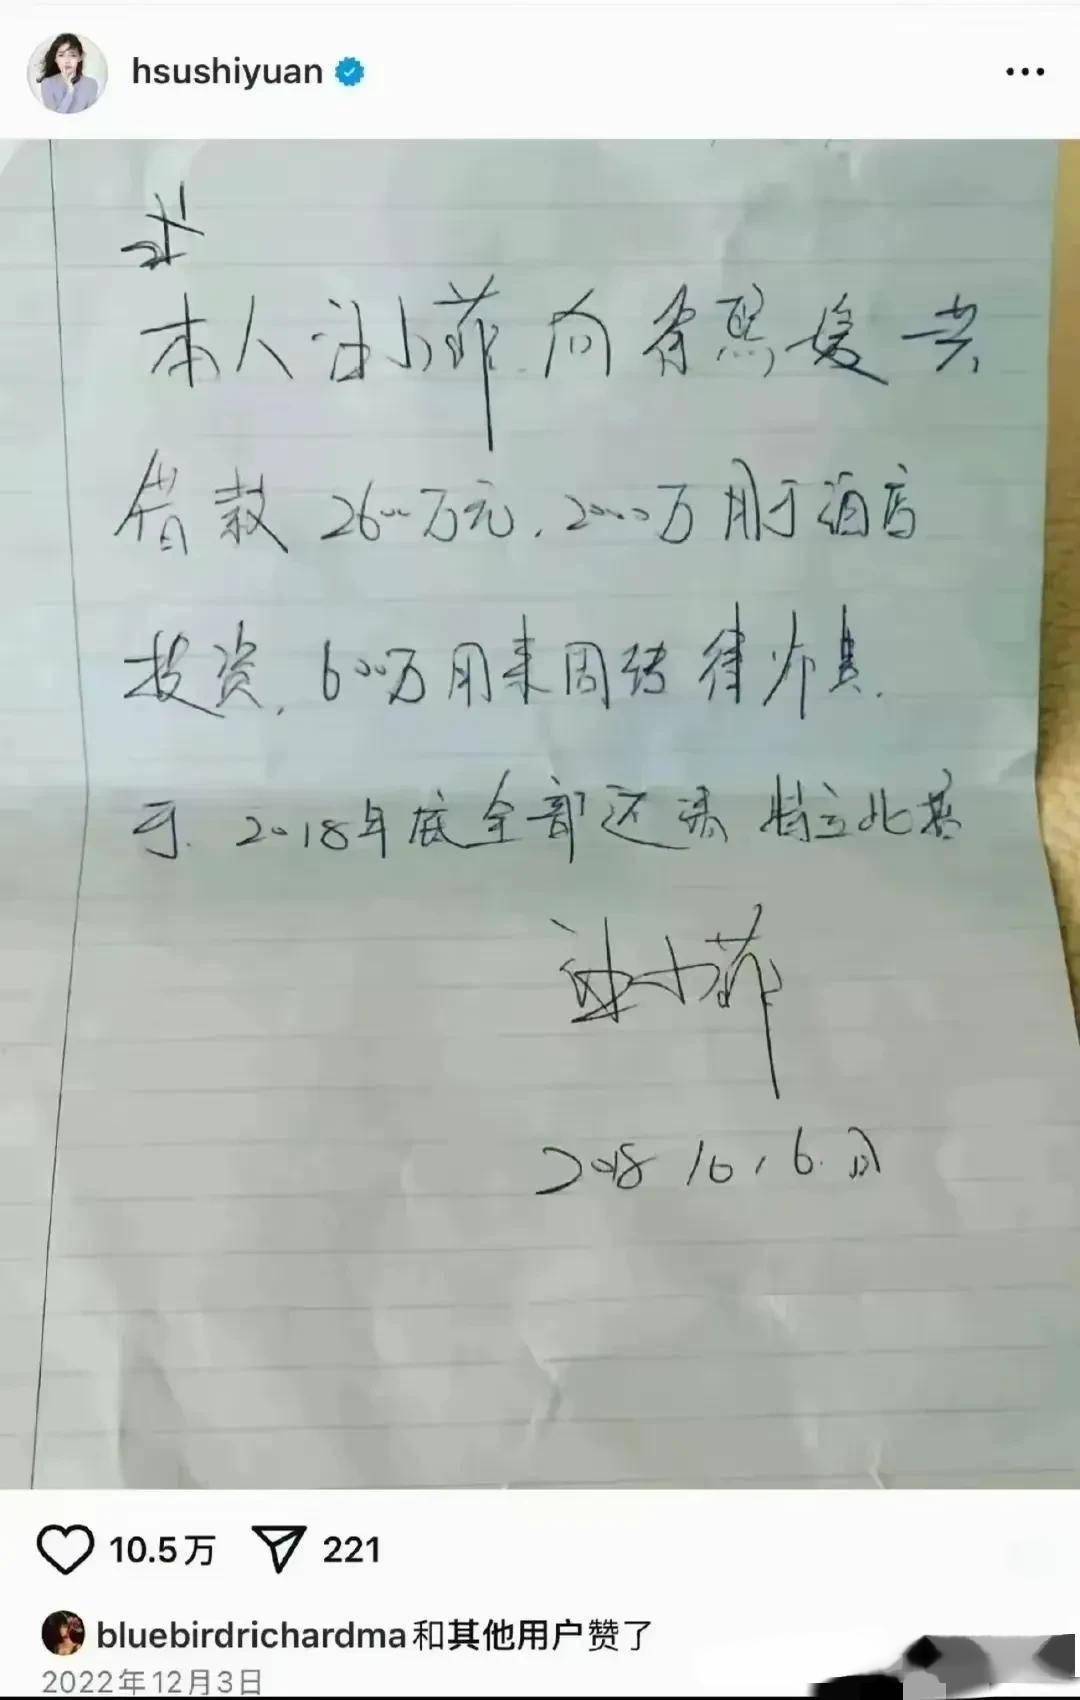 hsushiyuan
本人汪小菲向徐熙媛共
借款2600万元,2000万用于酒店
投资,600万用来周转律师费.
于2018年底全部还清 特立此据
汪小菲
2018 10, 6.日
10.5万 221
bluebirdrichardma和其他用户赞了
2022年12月3日